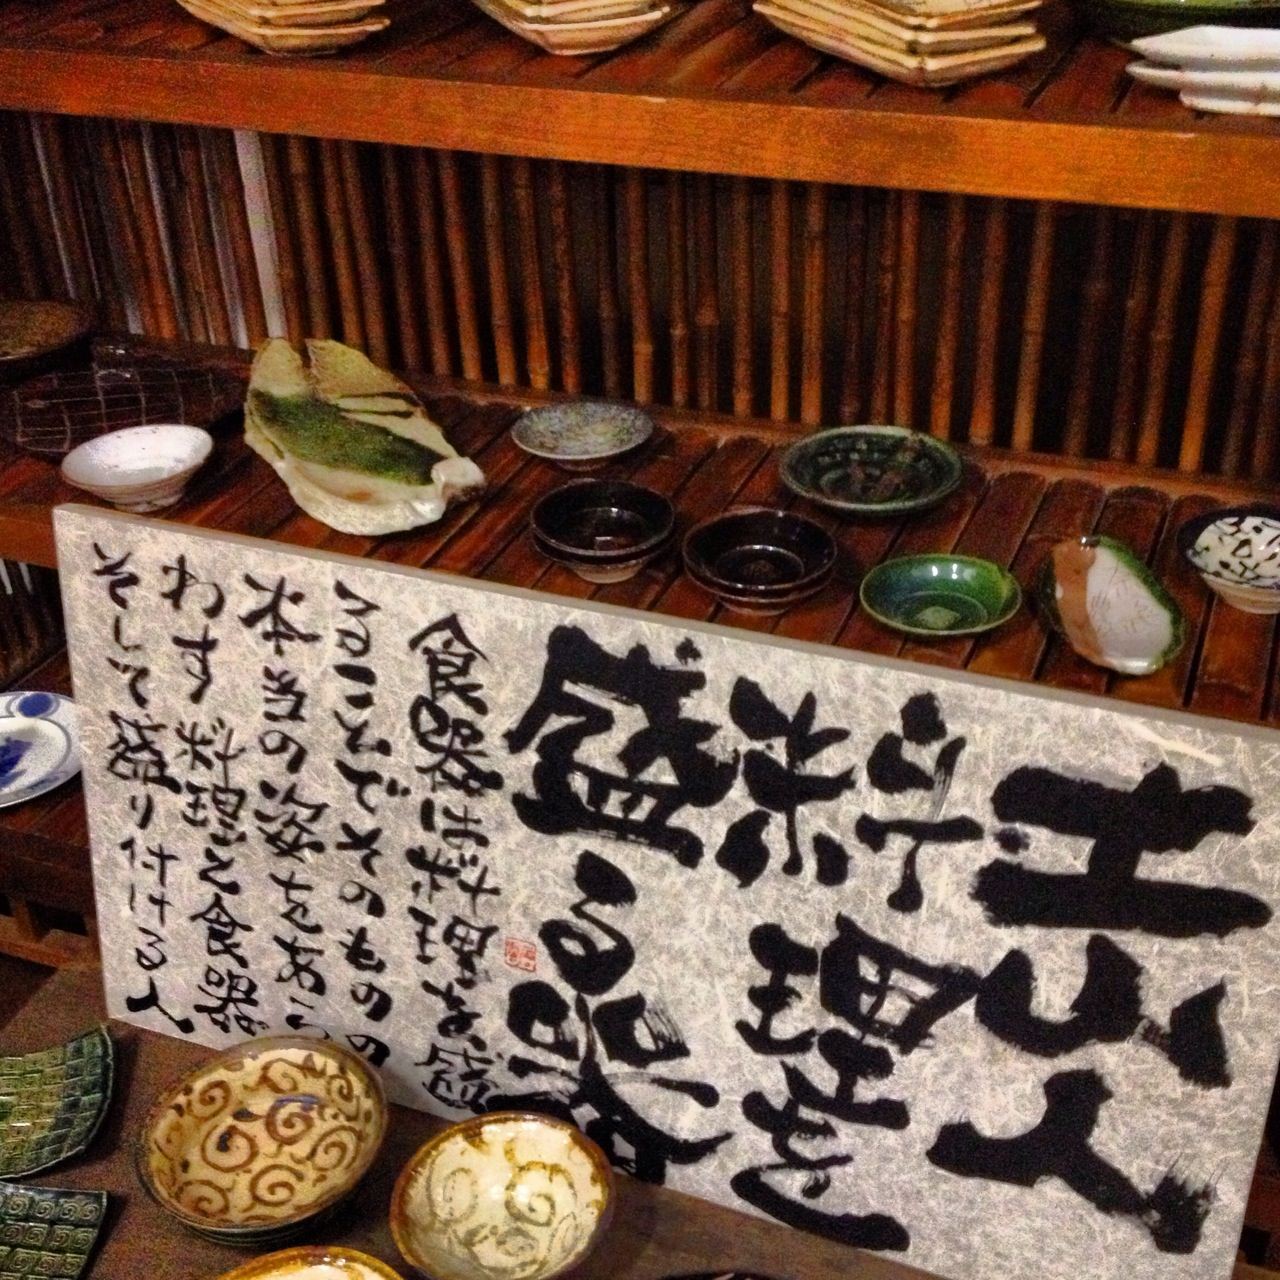 土か人
料理を
盛る器
食器は料理を盛
ることでそのものの
本当の姿をあら
わす 料理と食器が
そして盛り付ける人